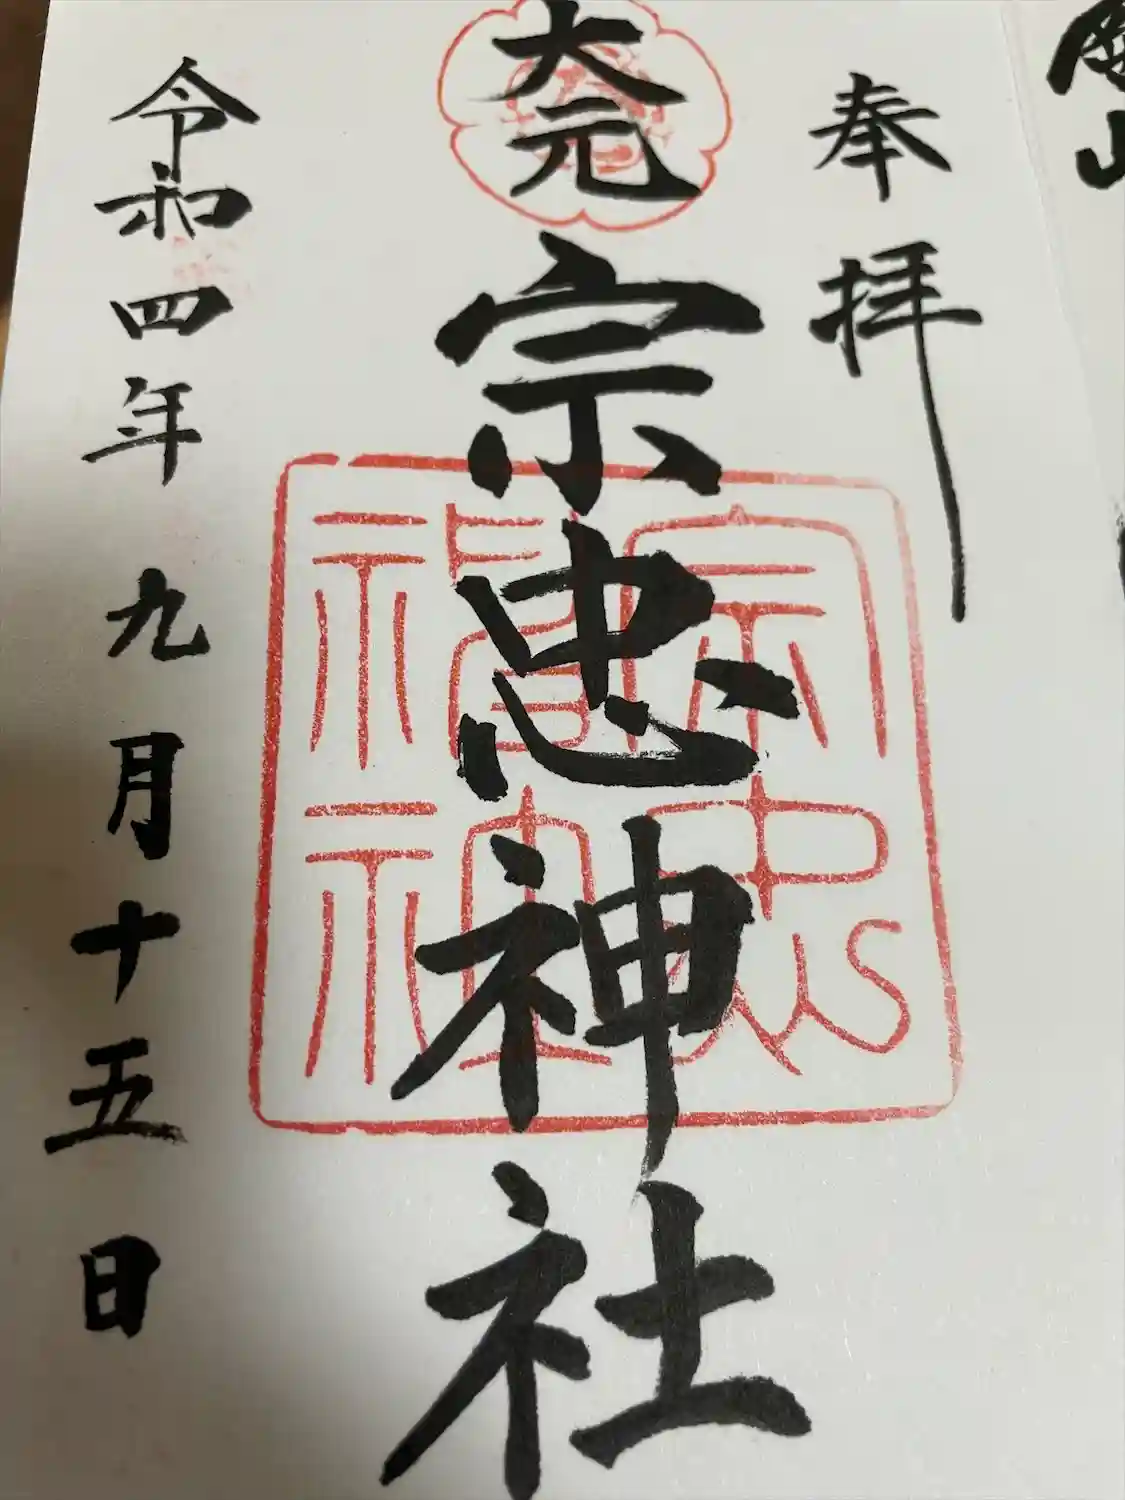 奉拝
大元
宗忠神社
令和四年九月十五日